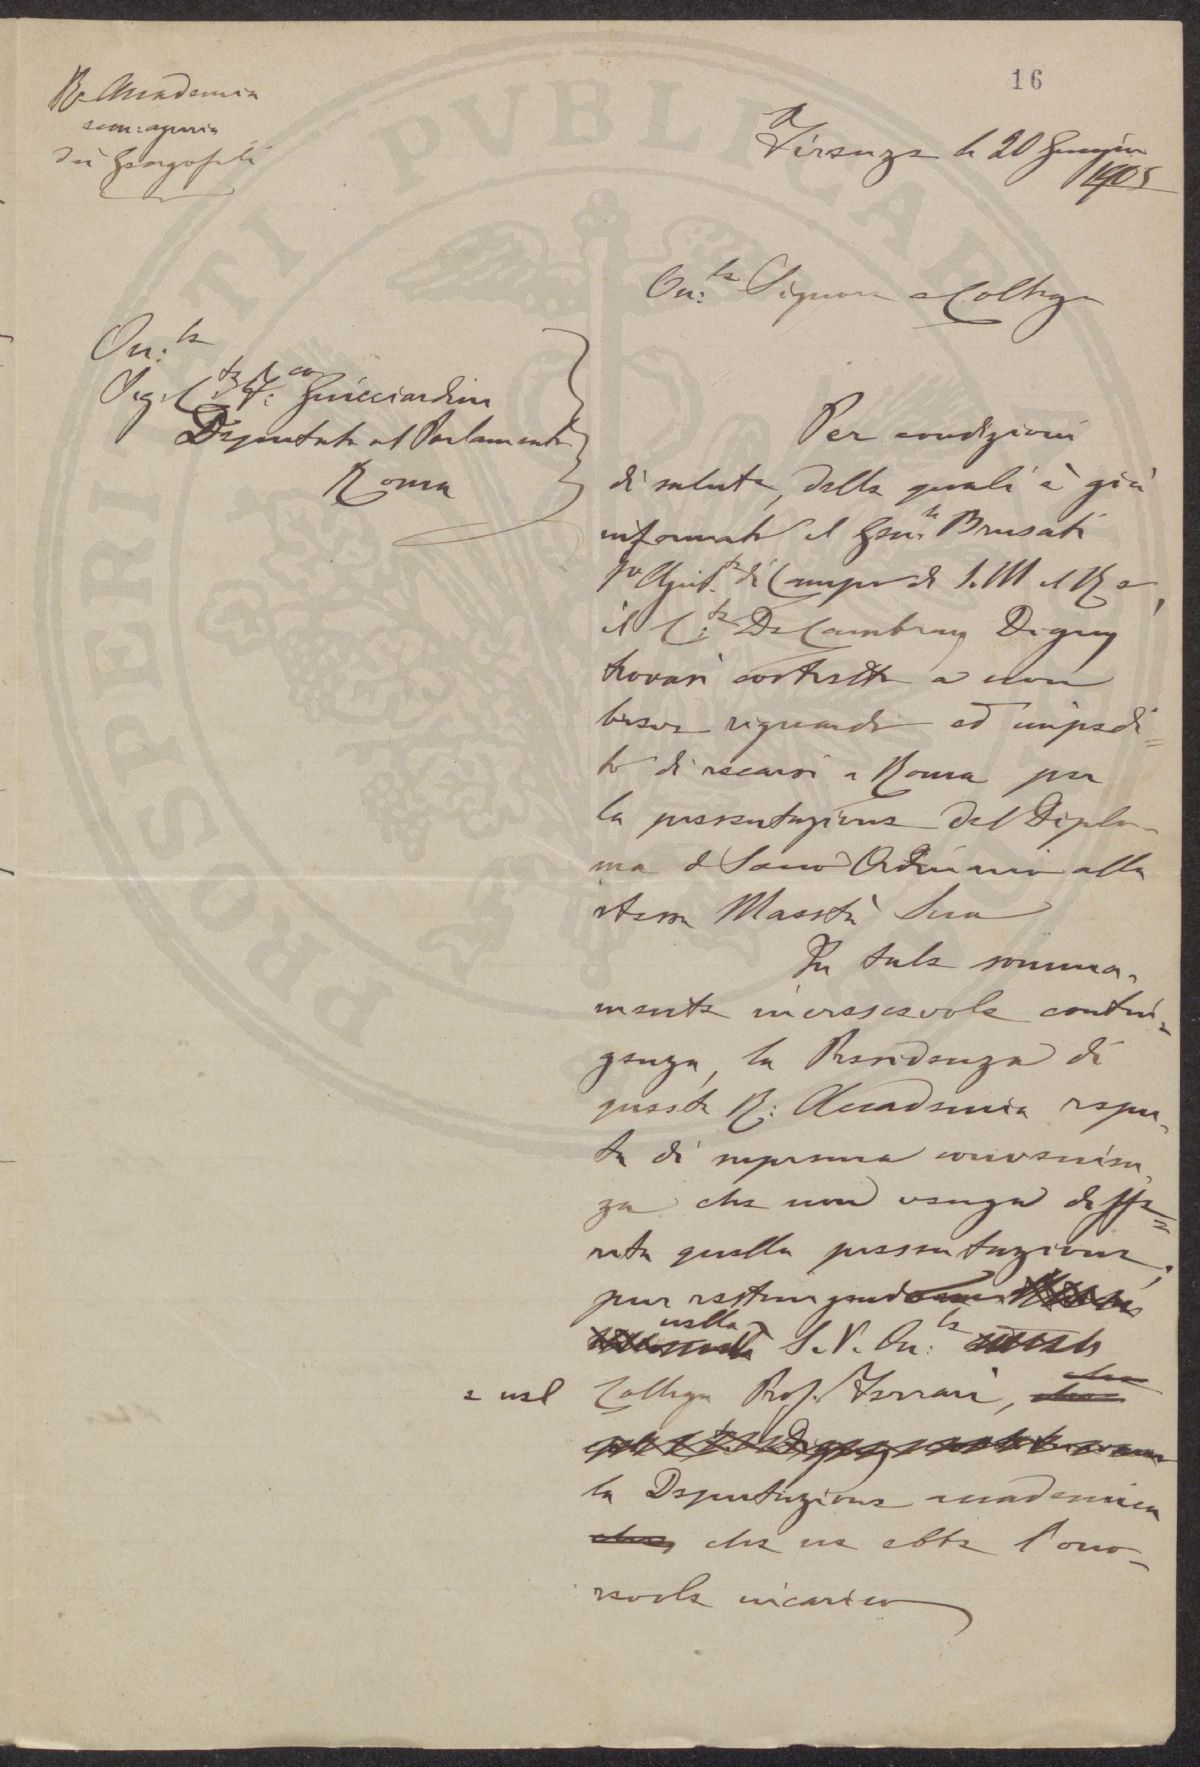 16
R. Accademia
econ: agraria
dei Georgofili
Firenze li 20 Giugno
1905
On:le Signore e Collega
On:le
Sig. C.te F:co Guicciardini
Deputato al Parlamento
Roma
Per condizioni
di salute, delle quali è già
informato il Gen.le Brusati
1o Ajut.te di Campo di S. M. il Re,
il C:te De Cambray Digny
trovasi costretto a non
breve riguardo ed impedi=
to di recarsi a Roma per
la presentazione del Diplo-
ma di Socio Ordinario alla
stessa Maestà Sua
In tale somma-
mente increscevole contin-
genza, la Presidenza di
questa R: Accademia repu-
ta di suprema convenien-
za che non venga diffe=
rita quella presentazione,
pur restringendo
nella S. V. On:le
e nel Collega Prof. Ferrari,
la Deputazione accademica
che ne ebbe l'ono-
revole incarico
PROSPERITATI PVBLICAE